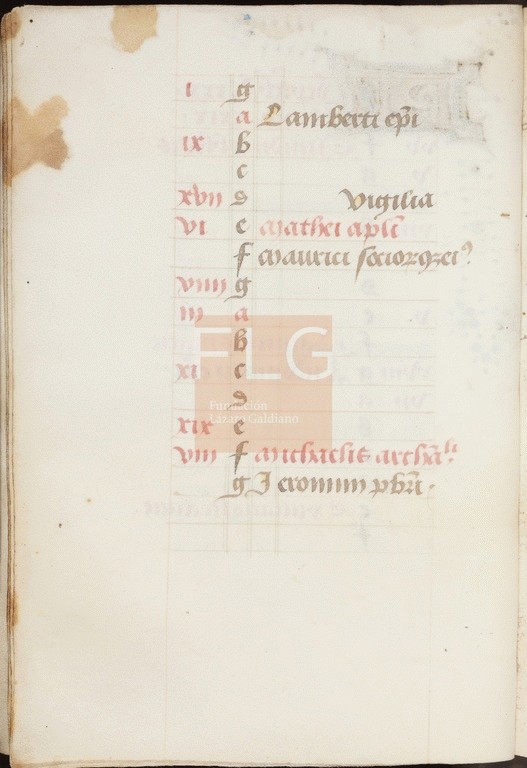 i g
a Lamberti ep̄i
ix b
c
xvii d Vigilia
vi e Mathei apl̄i
f Mauricii socior
viiii g
iii a
b
xi c
d
xix e
viii f Michaelis archā
g Jeronimi pb̄ri.
FLG
Fundación
Lázaro Galdiano